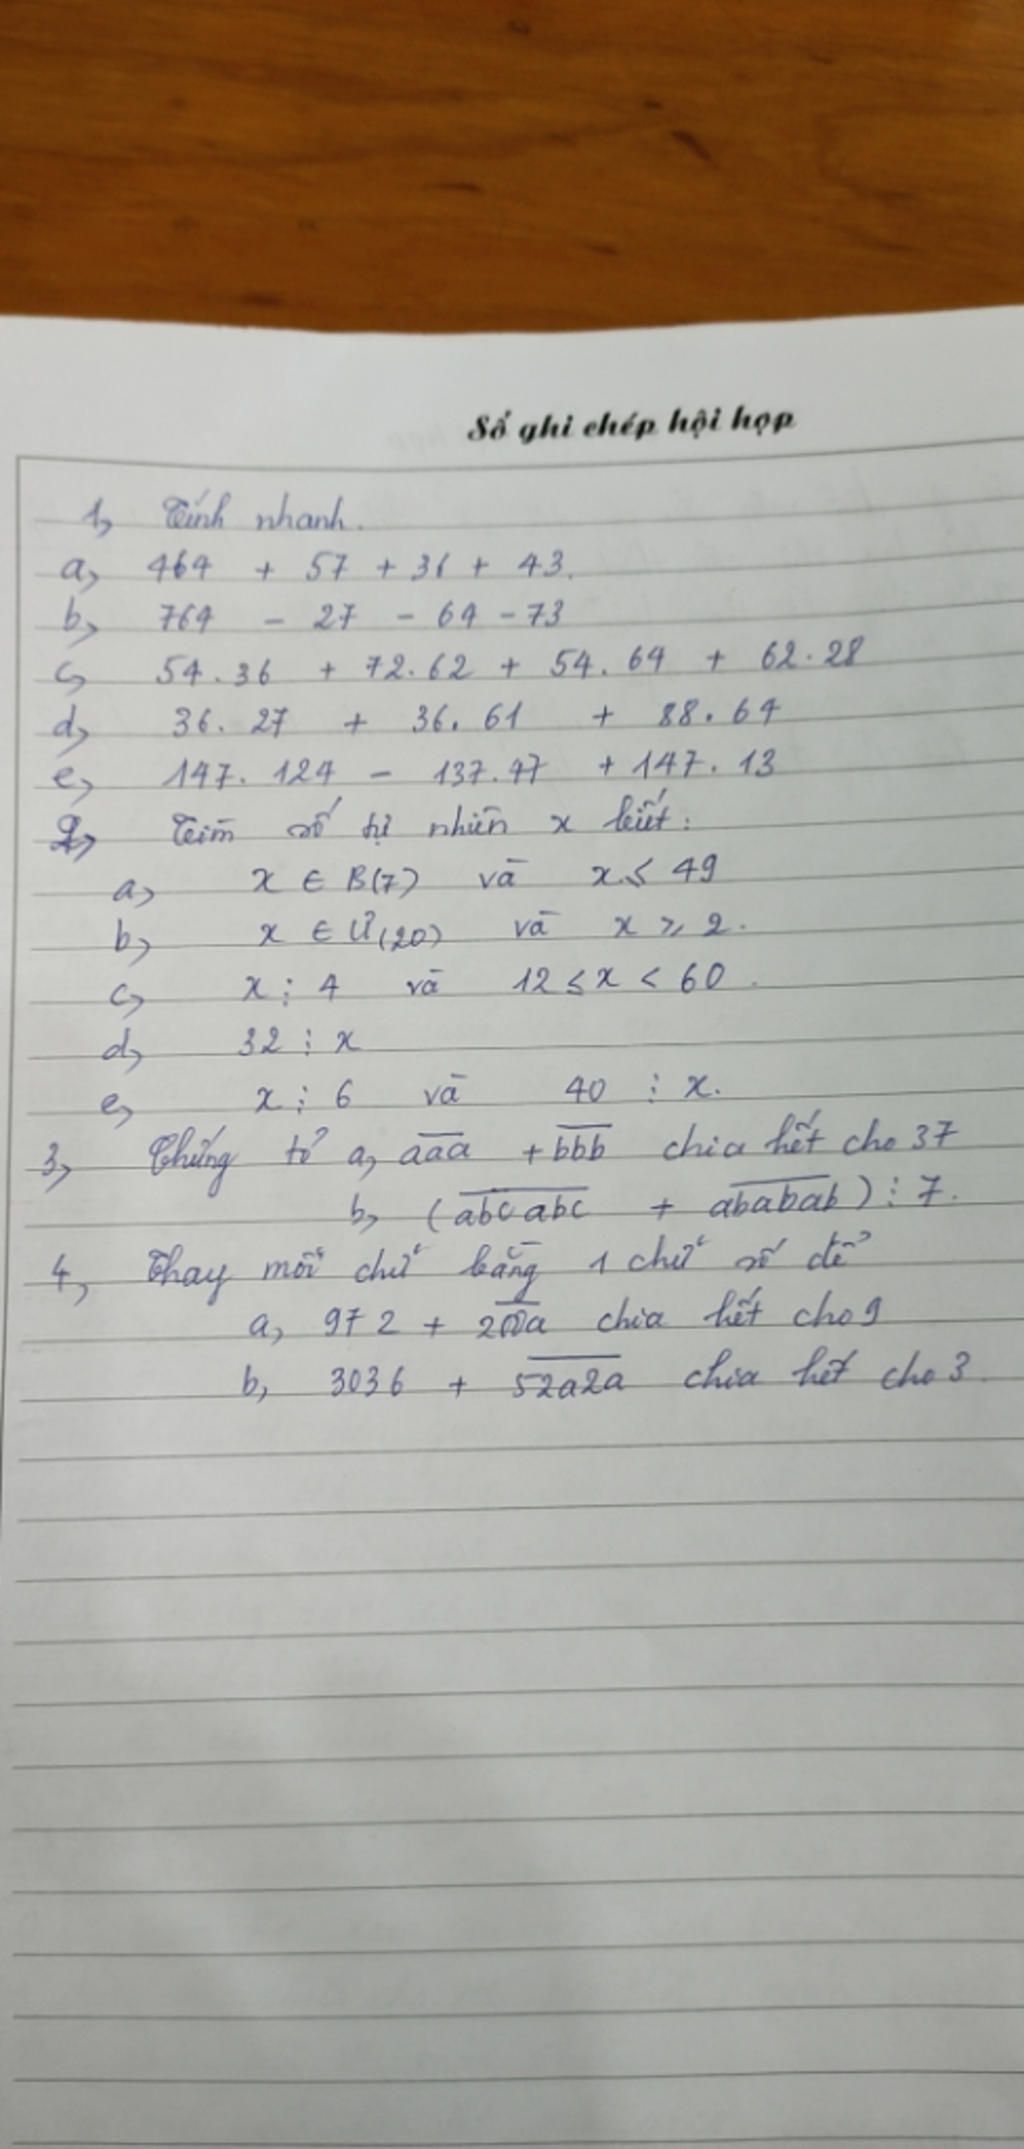 Sổ ghi chép hội họp
1, Tính nhanh.
a, 464 + 57 + 36 + 43.
b, 764 - 27 - 64 - 73
c, 54.36 + 72.62 + 54.64 + 62.28
d, 36.27 + 36.61 + 88.64
e, 147.124 - 137.47 + 147.13
2, Tìm số tự nhiên x biết:
a, x ∈ B(7) và x ≤ 49
b, x ∈ Ư(20) và x ≥ 2.
c, x ⋮ 4 và 12 ≤ x < 60.
d, 32 ⋮ x
e, x ⋮ 6 và 40 ⋮ x.
3, Chứng tỏ a, a̅a̅a̅ + b̅b̅b̅ chia hết cho 37
b, (a̅b̅c̅a̅b̅c̅ + a̅b̅a̅b̅a̅b̅) ⋮ 7.
4, Thay mỗi chữ bằng 1 chữ số để
a, 972 + chia hết cho 9
b, 3036 + 5̅2̅a̅2̅a̅ chia hết cho 3.